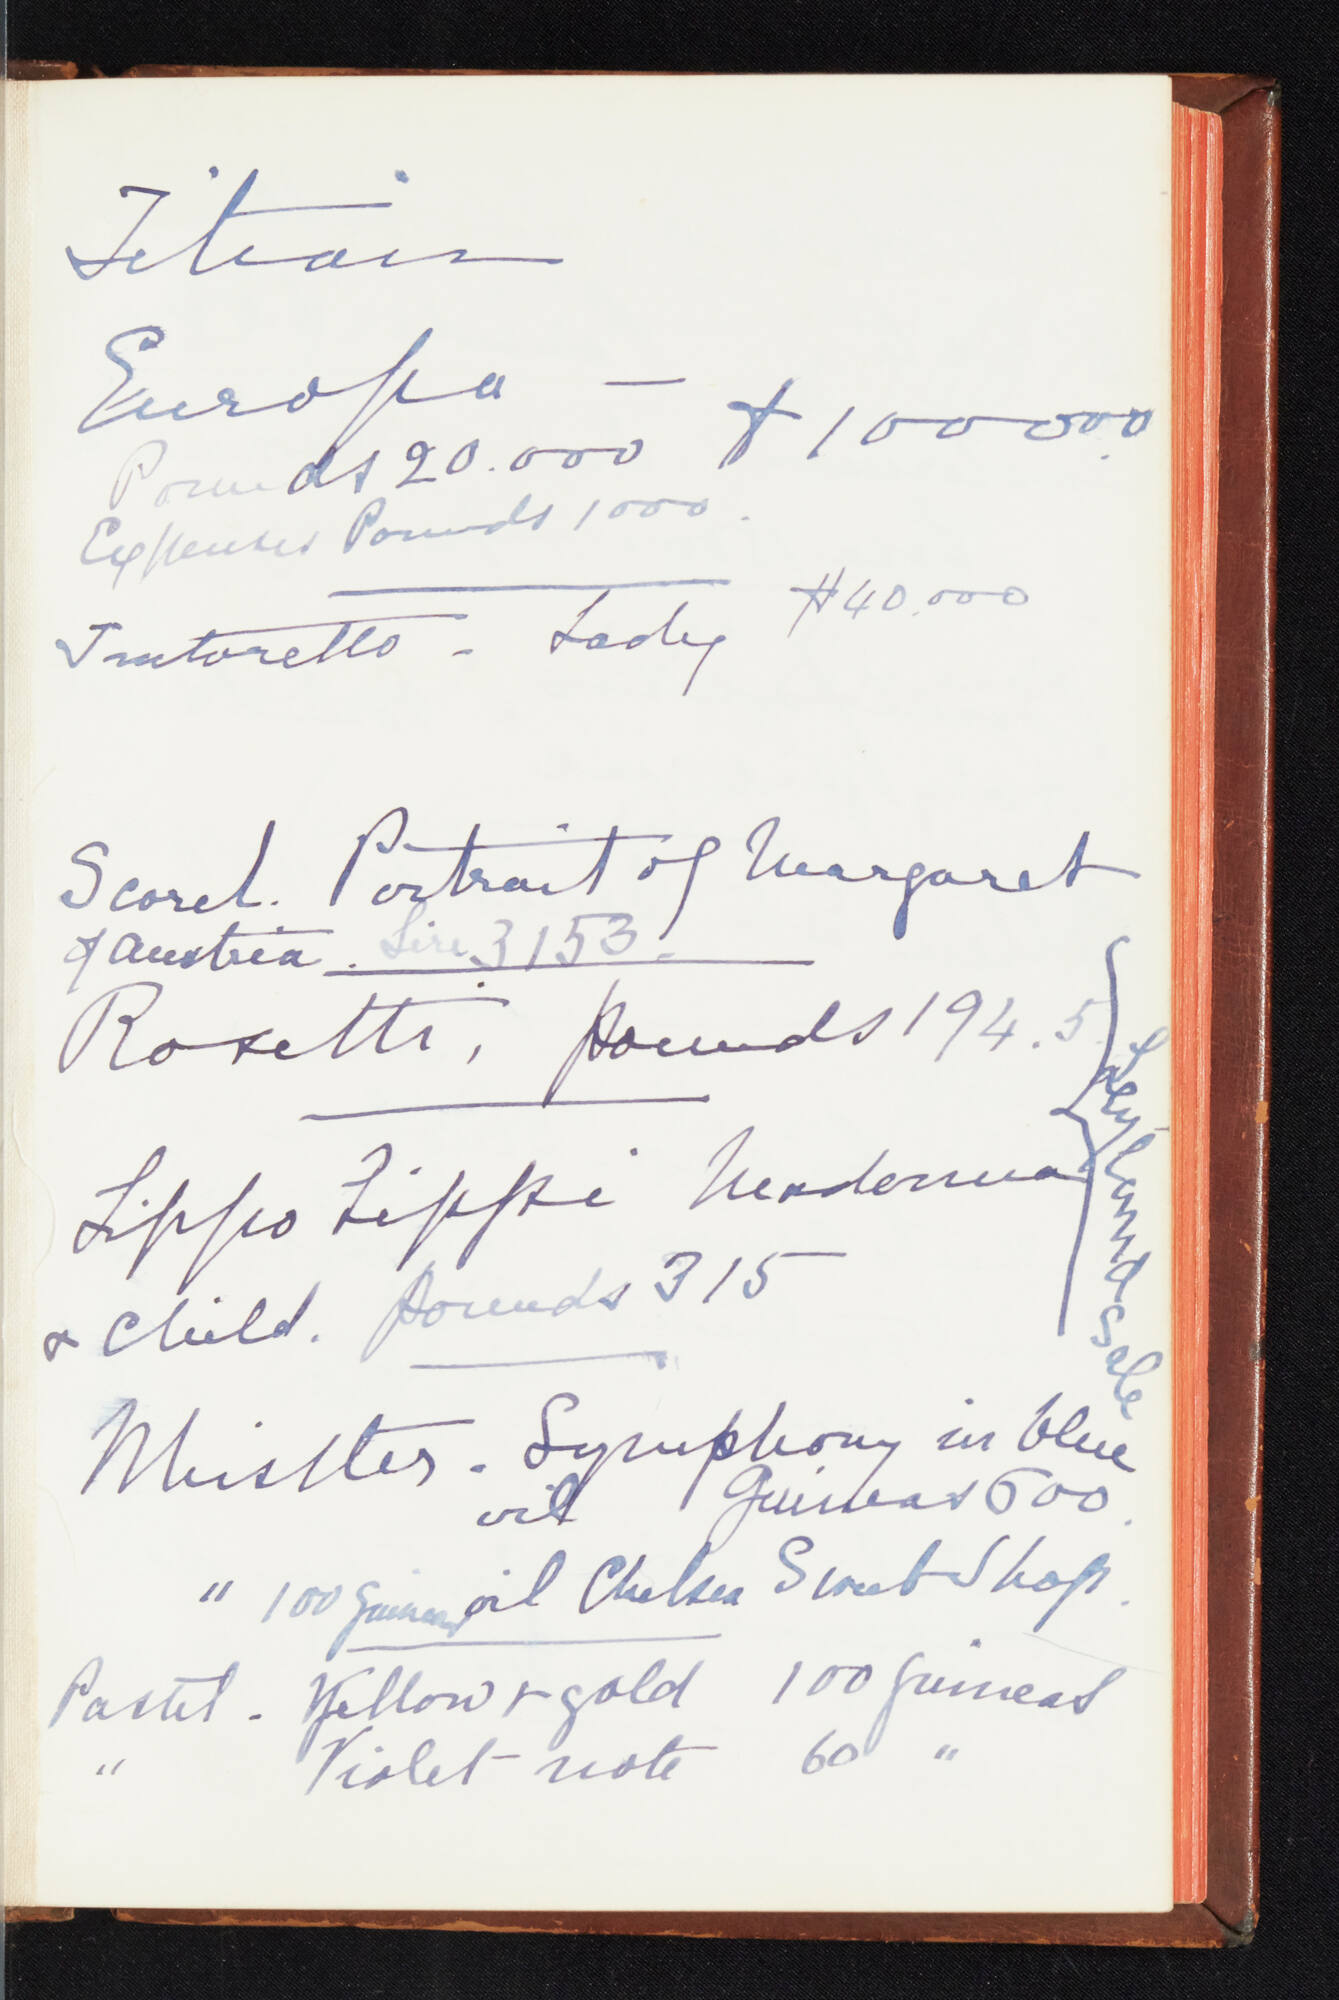 Titian
Europa — $100000.00
Pounds 20.000
Expenses Pounds 1000.
$40.000
Tintoretto - Lady
Scorel. Portrait of Margaret
of Austria. Lire 3153.
Rosetti, pounds 194.5.
Lippo Lippi Madonna
& Child. pounds 315
Leyland Sale
Whistler. Symphony in blue
oil Guineas 600.
" 100 guineas oil Chelsea Sweet Shop.
Pastel. Yellow & gold 100 guineas
" Violet note 60 "